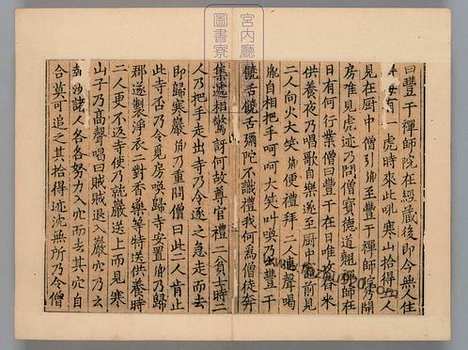 宮内廳
圖書寮
曰豐干禪師院在經藏後即今無人住
一虎時來此吼寒山拾得二人
見在厨中僧引閭丘至豐干禪師院乃開
房唯見虎迹乃問僧寶德道翹禪師在
日有何行業僧曰豐干在日唯攻舂米
供養夜乃唱歌自樂遂至厨中竈前見
二人向火大笑閭丘便禮拜二人連聲喝
自相把手呵呵大笑叫喚乃云豐干
饒舌饒舌彌陀不識禮我何爲僧徒奔
集遞相驚訝何故尊官禮二貧士時二
人乃把手走出寺乃令逐之急走而去
即歸寒巖乃重問僧曰此二人肯止
此寺否乃令覓房喚歸寺安置乃歸
郡遂製淨衣二對香藥等特送供養時
二人更不返寺使乃就巖送上而見寒
山子乃高聲喝曰賊賊退入巖穴乃云
諸人各各努力入穴而去其穴自
合莫可追之其拾得迹沈無所乃令僧